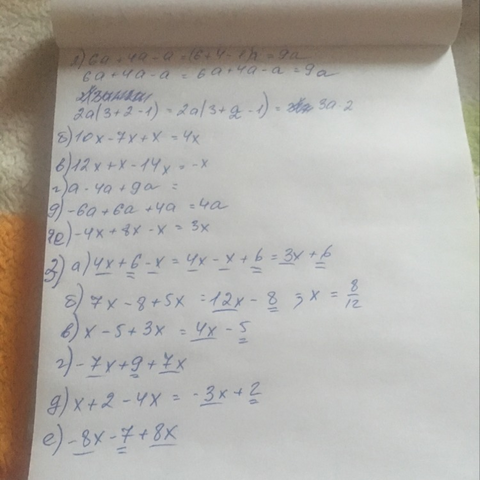 а) 6a + 4a - a = (6 + 4 - 1)a = 9a
6a + 4a - a = 6a + 4a - a = 9a
2a(3 + 2 - 1) = 2a(3 + 2 - 1) = 3a · 2
б) 10x - 7x + x = 4x
в) 12x + x - 14x = -x
г) a - 4a + 9a =
д) -6a + 6a + 4a = 4a
е) -4x + 8x - x = 3x
2) а) 4x + 6 - x = 4x - x + 6 = 3x + 6
б) 7x - 8 + 5x = 12x - 8 ; x = 8/12
в) x - 5 + 3x = 4x - 5
г) -7x + 9 + 7x
д) x + 2 - 4x = -3x + 2
е) -8x - 7 + 8x